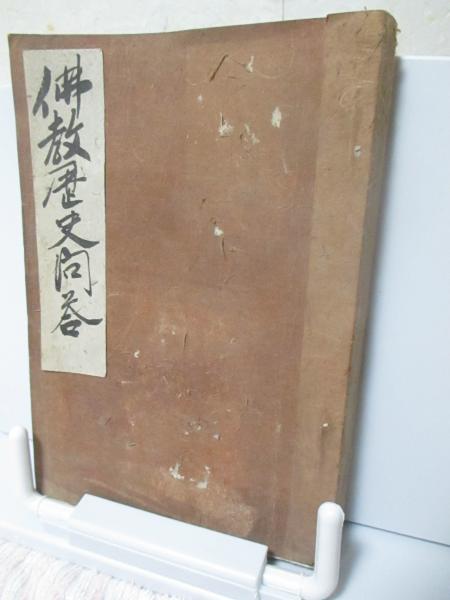 佛教歴史問答